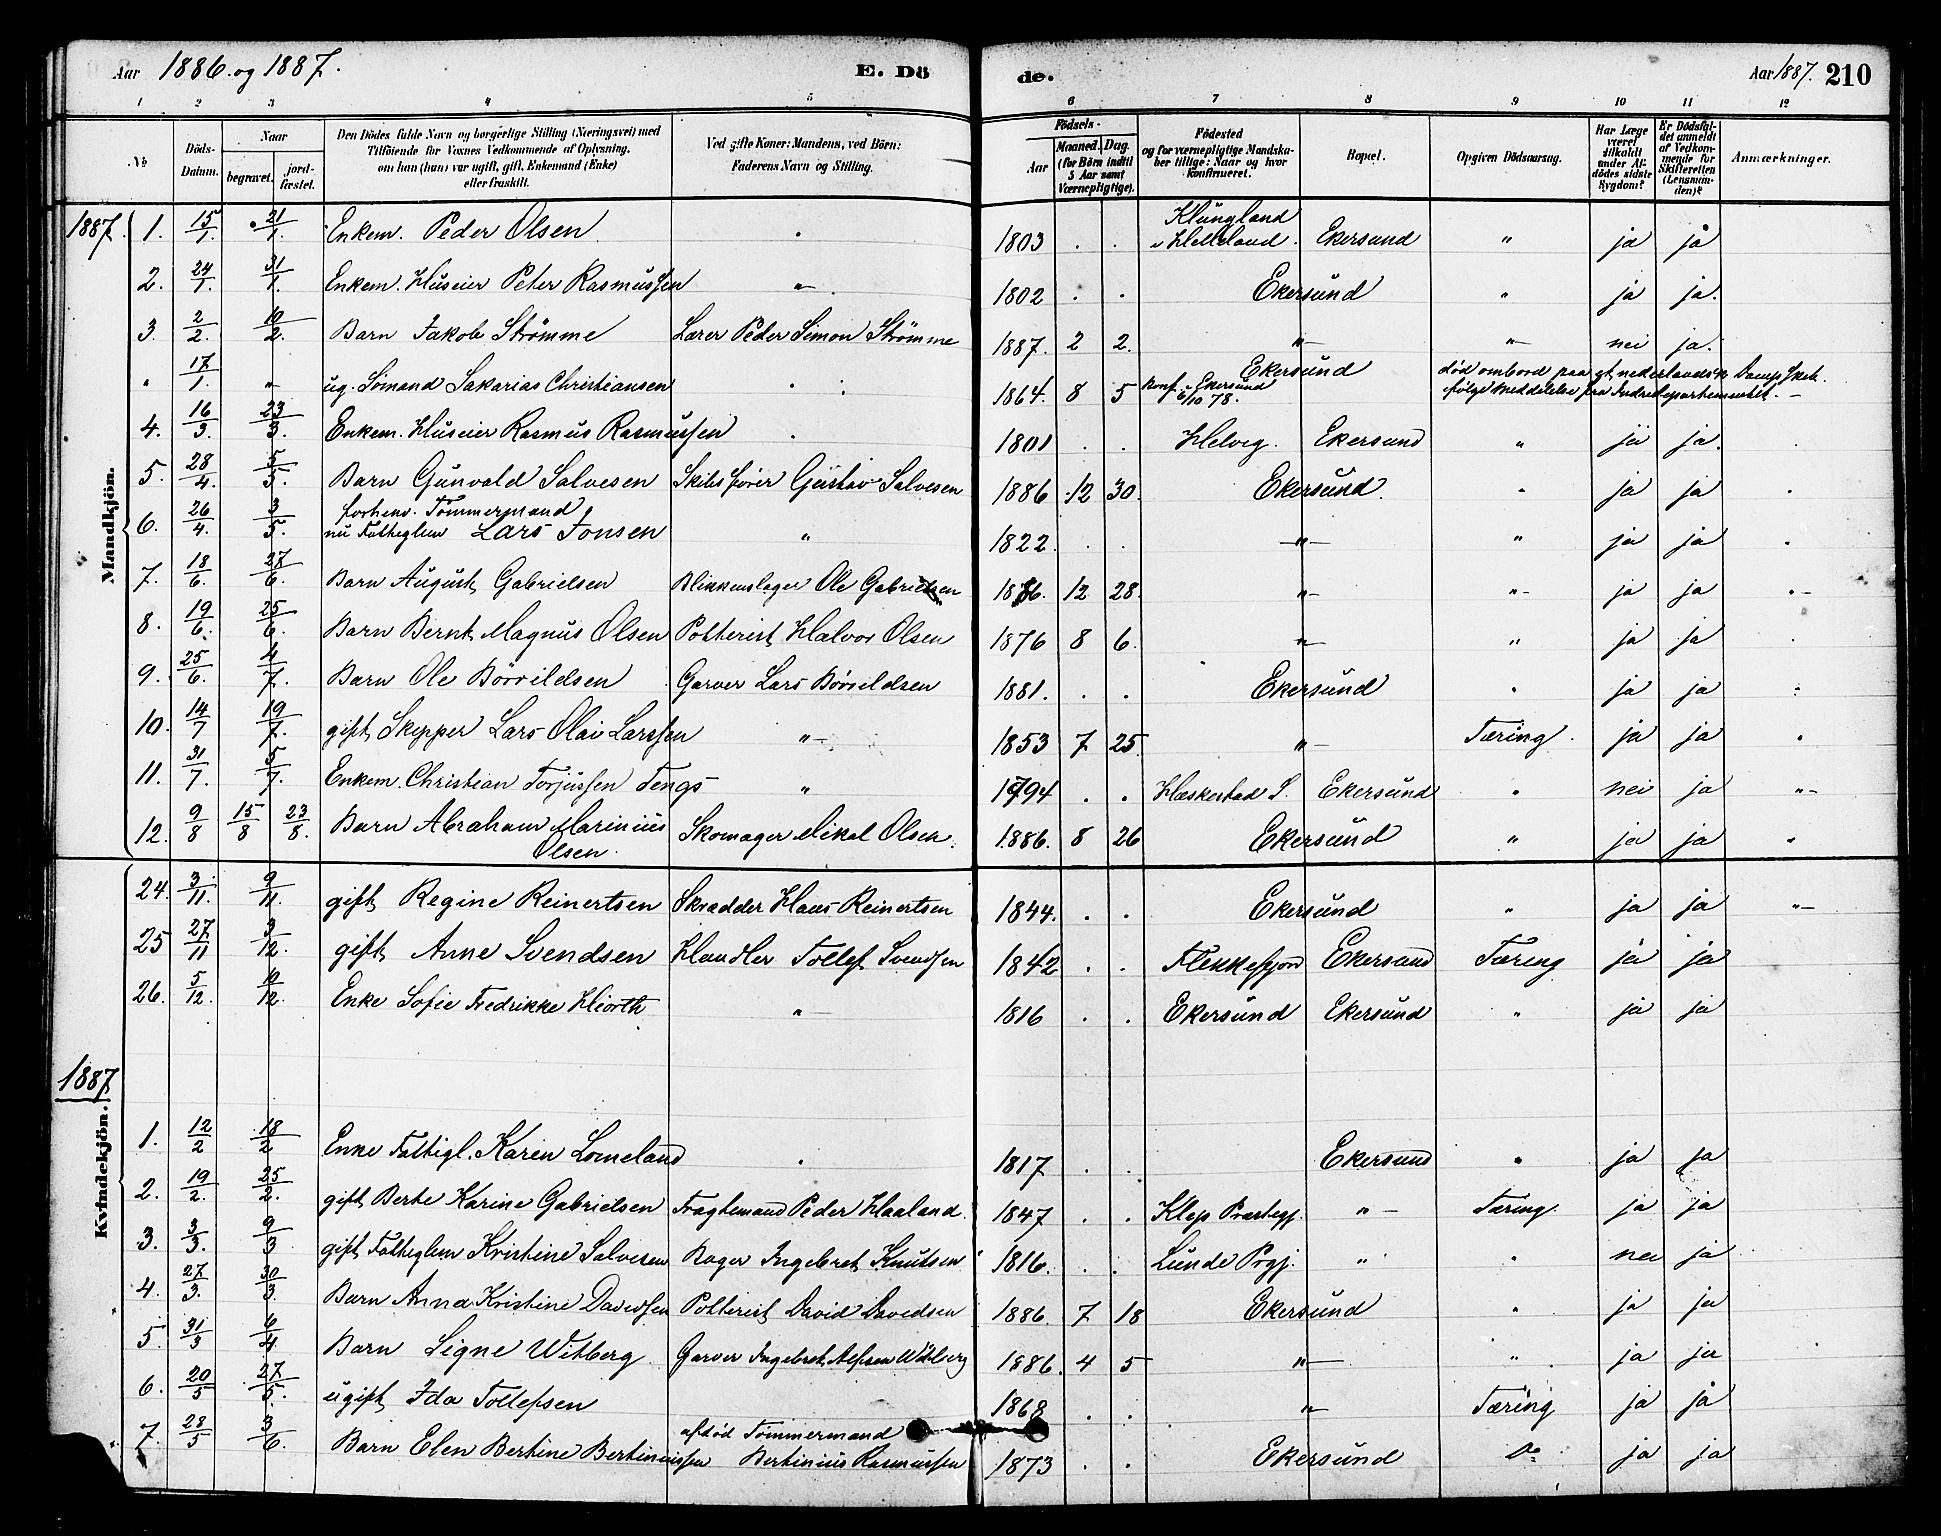 Aar 1886. og 1887.
E. Dö
de.
Aar 1887. 210
1 2 3 4 5 6 7 8 9 10 11 12
No
Döds-Datum.
Naar begravet. jord-fæstet.
Den Dödes fulde Navn og borgerlige Stilling (Næringsvei) med
Tilföiende for Voxnes Vedkommende af Oplysning,
om han (hun) var ugift, gift, Enkemand (Enke)
eller fraskilt.
Ved gifte Koner: Mandens, ved Börn:
Faderens Navn og Stilling.
Födsels-
Aar Maaned. Dag.
(for Börn indtil 5 Aar samt Værnepligtige).
Födested
og for værnepligtige Mandskaber tillige: Naar og hvor konfirmeret.
Bopæl.
Opgiven Dödsaarsag.
Har Læge været tilkaldt under Afdödes sidste Sygdom?
Er Dödsfaldet anmeldt af Vedkommende for Skifteretten (Lensmanden)?
Anmærkninger.
Mandkjön.
1887. 1. 15/1. 21/1. Enkem. Peder Olsen 1803 . . Klungland i Helleland. Ekersund " ja ja
2. 24/1. 31/1. Enkem. Huseier Peter Rasmussen " 1802 . . Ekersund " ja ja.
3. 2/2. 10/2. Barn Jakob Strømme Lærer Peder Simon Strømme 1887. 2 2. " " nei ja.
" 17/1. " ug. Sømand Sakarias Christiansen 1864. 8 5 Konf. Ekersund 6/10 78. Ekersund død ombord paa et nederlandsk Dampsk.
ifølge Meddelelse fra Indredepartementet.
4. 16/3. 23/3. Enkem. Huseier Rasmus Rasmussen 1801 . . Helvig. Ekersund " ja ja.
5. 28/4. 5/5. Barn Gunvald Salvesen Skibsfører Gustav Salvesen 1886 12 30. Ekersund. " ja ja
6. 26/4. 3/5. forhenv. Tømmermand
nu Fattiglem Lars Jonsen " 1822. . . " " ja ja
7. 18/6. 27/6. Barn August Gabrielsen Blikkenslager Ole Gabrielsen 1886. 12 28. " " ja ja "
8. 19/6. 25/6. Barn Bernt Magnus Olsen Potterist Halvor Olsen 1876 8 6. " " ja ja
9. 25/6. 4/7. Barn Ole Börrildsen Garver Lars Börrildsen 1881. . . Ekersund " ja ja
10. 14/7 19/7. gift Skipper Lars Olai Larssen " 1853 7 25. " Tæring. ja ja
11. 31/7. 5/7. Enkem. Christian Torjussen Tengs " 1794 . . Heskestad S. Ekersund " nei ja "
12. 9/8 15/8 23/8. Barn Abraham Marinius
Olsen. Skomager Mikal Olsen. 1886. 8 26 Ekersund " ja ja
Kvindekjön.
24. 3/11. 9/11. gift Regine Reinertsen Skradder Hans Reinertsen 1844. . . Ekersund " ja ja "
25 27/11 3/12. gift Anne Svendsen Handler Tollef Svendsen 1842 . . Flekkefjord Ekersund Tæring ja ja
26. 5/12. 10/12. Enke Sofie Fredrikke Hiorth " 1816 . . Ekersund Ekersund " ja ja
1887
1. 12/2 18/2 Enke Fattigl. Karen Lomeland 1817 . . Ekersund " ja ja
2. 19/2. 25/2. gift Berte Karine Gabrielsen Fragtemand Peder Haaland. 1847 . . Klep Præstegj. " Tæring. ja ja
3. 3/3. 9/3 gift Fattiglem Kristine Salvesen Bager Ingebret Knutsen 1816. . . Lunde Prgj. " " nei ja
4. 27/3. 30/3. Barn Anna Kristine Davidsen Potterist David Davidsen 1886. 7 18 Ekersund " ja ja
5 31/3 6/4 Barn Signe Witberg Garver Ingebret Witberg 1886. 4 5 " " ja ja
6. 20/5 27/5. ugift Ida Tollefsen 1868 . . " Tæring ja ja
7. 28/5 3/6. Barn Elen Bertine Bertiniussen afdød Tømmermand
Bertinius Rasmussen 1873 . . Ekersund Do ja ja